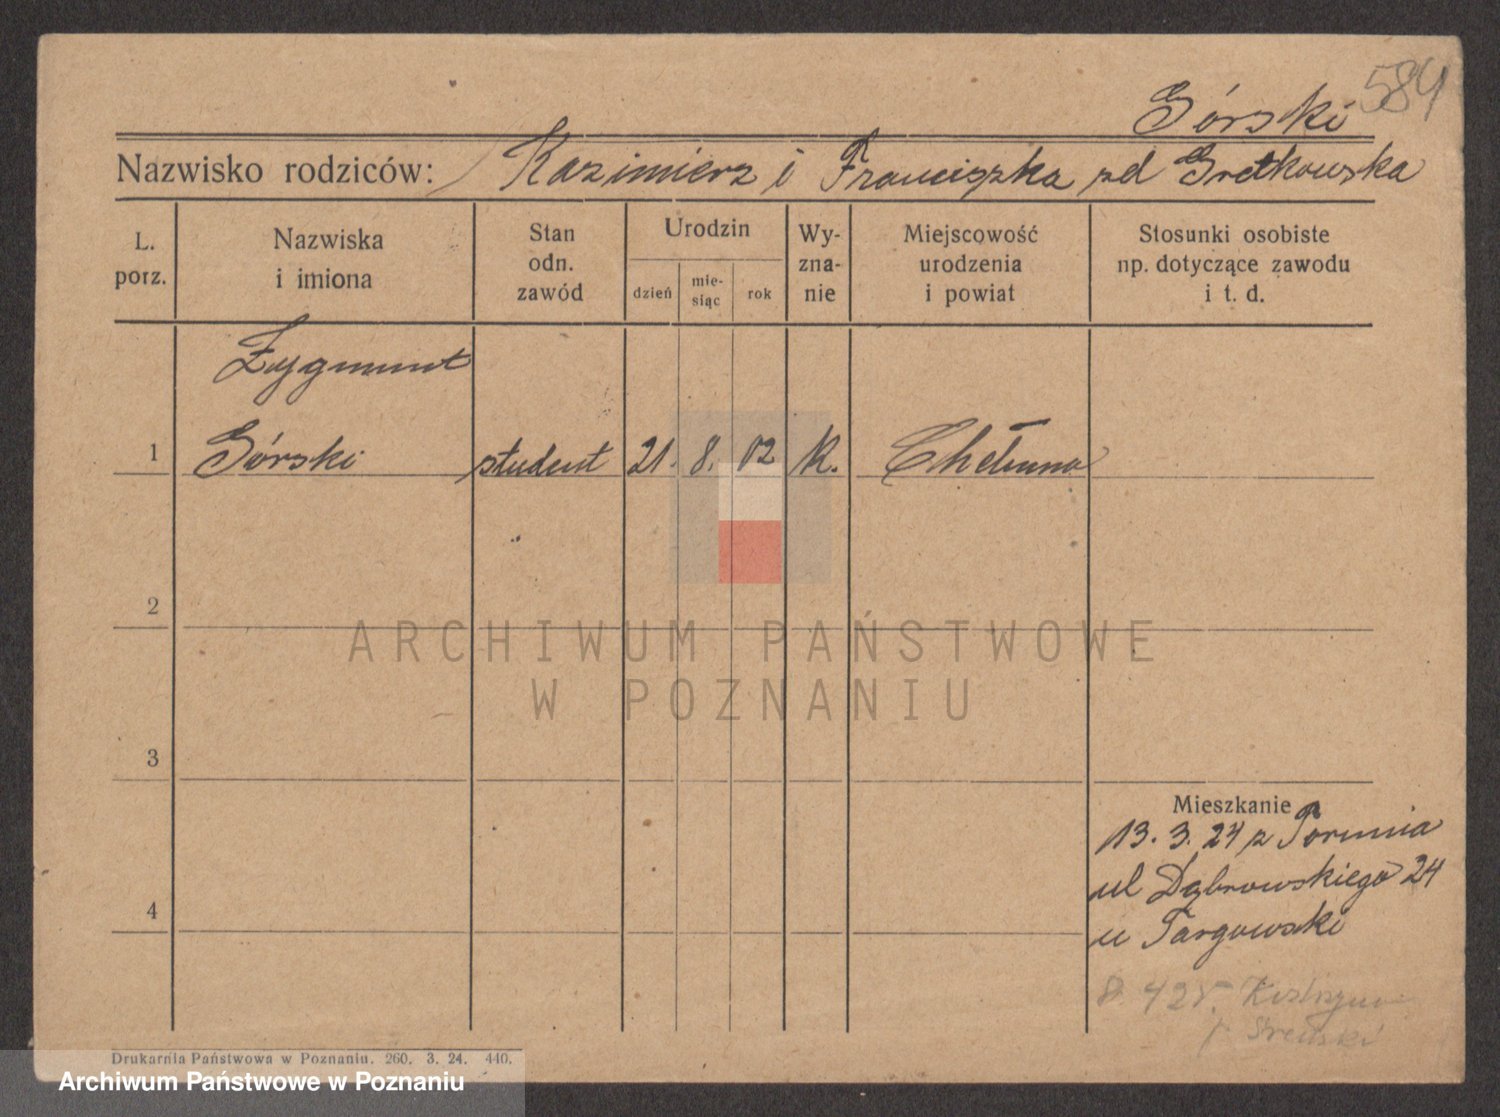 584
Górski
Nazwisko rodziców: Kazimierz i Franciszka zd Gretkowska
L. porz.
Nazwiska i imiona
Stan odn. zawód
Urodzin
dzień
mie-
siąc
rok
Wy-
zna-
nie
Miejscowość urodzenia i powiat
Stosunki osobiste np. dotyczące zawodu i t. d.
Zygmunt
1 Górski student 21. 8. 02 K. Chełmno
2
ARCHIWUM PAŃSTWOWE
W POZNANIU
3
Mieszkanie
13. 3. 24 z Torunia
ul Dąbrowskiego 24
u Targowski
4
Drukarnia Państwowa w Poznaniu. 260. 3. 24. 440.
Archiwum Państwowe w Poznaniu